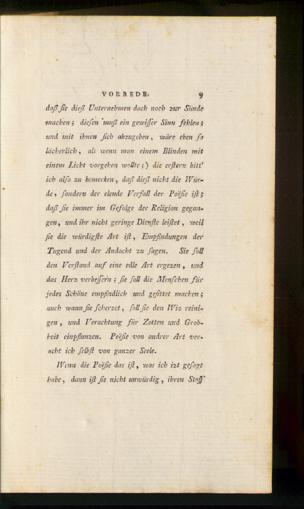 VORREDE. 9
daß sie dieß Unternehmen dach noch zur Sünde
machen; diesen muß ein gewisser Sinn fehlen;
und mit ihnen sich abzugeben, wäre eben so
lächerlich, als wenn man einem Blinden mit
einem Licht vorgehen wollte;) die erstern bitt'
ich also zu bemerken, daß dieß nicht die Wür-
de, sondern der elende Verfall der Poësie ist;
daß sie immer im Gefolge der Religion gegan-
gen, und ihr nicht geringe Dienste leistet, weil
sie die würdigste Art ist, Empfindungen der
Tugend und der Andacht zu sagen. Sie soll
den Verstand auf eine edle Art ergezen, und
das Herz verbessern; sie soll die Menschen für
jedes Schöne empfindlich und gesittet machen;
auch wann sie scherzet, soll sie den Wiz reini-
gen, und Verachtung für Zotten und Grob-
heit einpflanzen. Poësie von andrer Art ver-
acht ich selbst von ganzer Seele.
Wenn die Poësie das ist, was ich izt gesagt
habe, dann ist sie nicht unwürdig, ihren Stoff